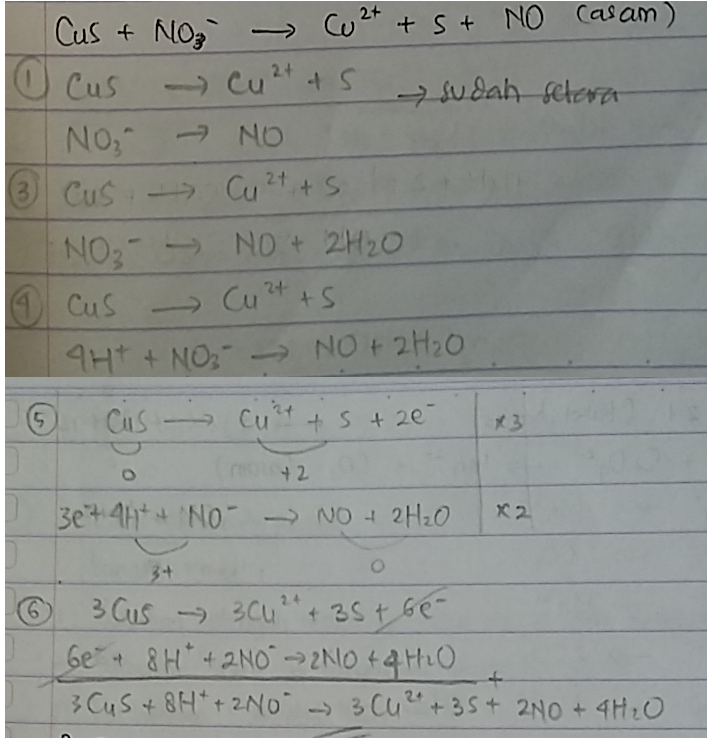 CuS + NO₃⁻ → Cu²⁺ + S + NO (asam)
① CuS → Cu²⁺ + S → sudah setara
NO₃⁻ → NO
③ CuS → Cu²⁺ + S
NO₃⁻ → NO + 2H₂O
④ CuS → Cu²⁺ + S
4H⁺ + NO₃⁻ → NO + 2H₂O
⑤ CuS → Cu²⁺ + S + 2e⁻ | ×3
0 +2
3e⁻ + 4H⁺ + NO⁻ → NO + 2H₂O | ×2
3+ 0
⑥ 3CuS → 3Cu²⁺ + 3S + 6e⁻
6e⁻ + 8H⁺ + 2NO⁻ → 2NO + 4H₂O
+
3CuS + 8H⁺ + 2NO⁻ → 3Cu²⁺ + 3S + 2NO + 4H₂O